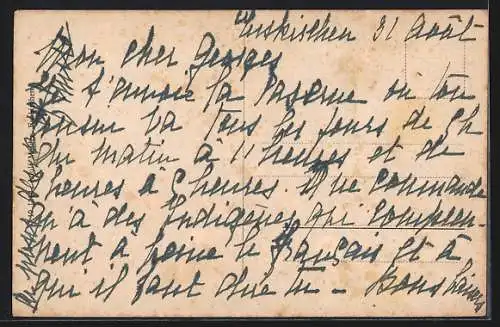 Euskirchen 31 Août
Mon cher Georges
Je t'envoie la caserne ou ton
cousin va tous les jours de 8h
du matin à 11 heures et de
heures à 5 heures. Il ne commande
à des Indigènes qui compren-
nent à peine le français et à
qui il faut dire tu - Bons baisers